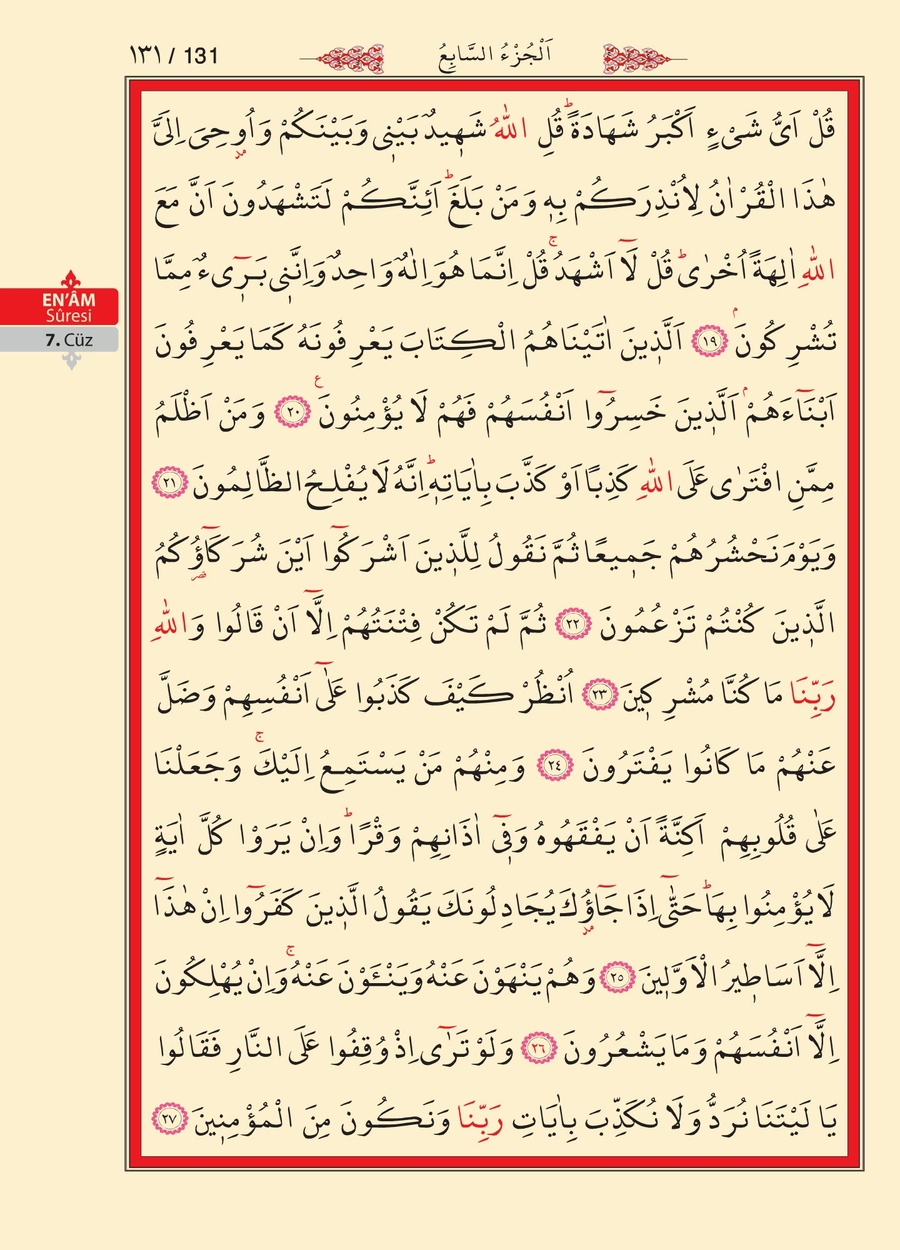 ١٣١ / 131
اَلْجُزْءُ السَّابِعُ
EN’ÂM
Sûresi
7. Cüz
قُلْ اَىُّ شَىْءٍ اَكْبَرُ شَهَادَةًۜ قُلِ اللّٰهُ شَه۪يدٌ بَيْن۪ى وَبَيْنَكُمْ وَاُو۫حِىَ اِلَىَّ
هٰذَا الْقُرْاٰنُ لِاُنْذِرَكُمْ بِه۪ وَمَنْ بَلَغَۜ اَئِنَّكُمْ لَتَشْهَدُونَ اَنَّ مَعَ
اللّٰهِ اٰلِهَةً اُخْرٰىۜ قُلْ لَٓا اَشْهَدُۚ قُلْ اِنَّمَا هُوَ اِلٰهٌ وَاحِدٌ وَاِنَّن۪ى بَر۪ٓىءٌ مِمَّا
تُشْرِكُونَۢ ﴿١٩﴾ اَلَّذ۪ينَ اٰتَيْنَاهُمُ الْكِتَابَ يَعْرِفُونَهُ كَمَا يَعْرِفُونَ
اَبْنَٓاءَهُمْۢ اَلَّذ۪ينَ خَسِرُٓوا اَنْفُسَهُمْ فَهُمْ لَا يُؤْمِنُونَ۟ ﴿٢٠﴾ وَمَنْ اَظْلَمُ
مِمَّنِ افْتَرٰى عَلَى اللّٰهِ كَذِبًا اَوْ كَذَّبَ بِاٰيَاتِه۪ۜ اِنَّهُ لَا يُفْلِحُ الظَّالِمُونَ ﴿٢١﴾
وَيَوْمَ نَحْشُرُهُمْ جَم۪يعًا ثُمَّ نَقُولُ لِلَّذ۪ينَ اَشْرَكُٓوا اَيْنَ شُرَكَٓاؤُ۬كُمُ
الَّذ۪ينَ كُنْتُمْ تَزْعُمُونَ ﴿٢٢﴾ ثُمَّ لَمْ تَكُنْ فِتْنَتُهُمْ اِلَّٓا اَنْ قَالُوا وَاللّٰهِ
رَبِّنَا مَا كُنَّا مُشْرِك۪ينَ ﴿٢٣﴾ اُنْظُرْ كَيْفَ كَذَبُوا عَلٰٓى اَنْفُسِهِمْ وَضَلَّ
عَنْهُمْ مَا كَانُوا يَفْتَرُونَ ﴿٢٤﴾ وَمِنْهُمْ مَنْ يَسْتَمِعُ اِلَيْكَۚ وَجَعَلْنَا
عَلٰى قُلُوبِهِمْ اَكِنَّةً اَنْ يَفْقَهُوهُ وَف۪ٓى اٰذَانِهِمْ وَقْرًاۜ وَاِنْ يَرَوْا كُلَّ اٰيَةٍ
لَا يُؤْمِنُوا بِهَاۜ حَتّٰٓى اِذَا جَٓاؤُ۫كَ يُجَادِلُونَكَ يَقُولُ الَّذ۪ينَ كَفَرُٓوا اِنْ هٰذَٓا
اِلَّٓا اَسَاط۪يرُ الْاَوَّل۪ينَ ﴿٢٥﴾ وَهُمْ يَنْهَوْنَ عَنْهُ وَيَنْـَٔوْنَ عَنْهُۚ وَاِنْ يُهْلِكُونَ
اِلَّٓا اَنْفُسَهُمْ وَمَا يَشْعُرُونَ ﴿٢٦﴾ وَلَوْ تَرٰٓى اِذْ وُقِفُوا عَلَى النَّارِ فَقَالُوا
يَا لَيْتَنَا نُرَدُّ وَلَا نُكَذِّبَ بِاٰيَاتِ رَبِّنَا وَنَكُونَ مِنَ الْمُؤْمِن۪ينَ ﴿٢٧﴾